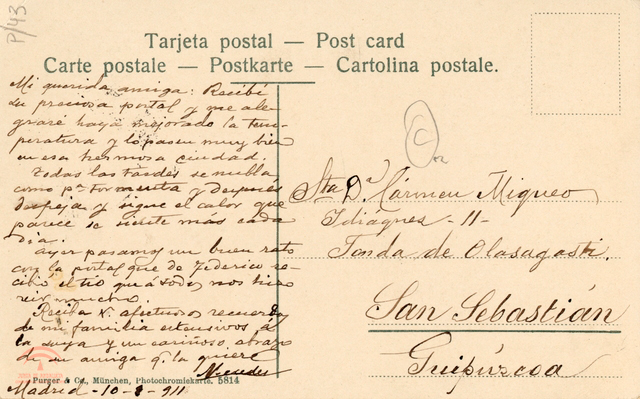 P/43
Tarjeta postal — Post card
Carte postale — Postkarte — Cartolina postale.
Mi querida amiga: Recibí
su preciosa postal y que ale
graré haya mejorado la tem-
peratura y lo pasen muy bien
en esa hermosa ciudad.
Todas las tardes se nubla
como pª tormenta y después
despeja y sigue el calor que
parece se siente más cada
día.
Ayer pasamos un buen rato
con la postal que de Federico re-
cibió el tío que á todos nos hizo
reir mucho.
Reciba V. afectuosos recuerdos
de mi familia extensivos á
la suya y un cariñoso abrazo
de su amiga q. la quiere
Mercedes
Madrid - 10-8-911
Purger & Co., München, Photochromiekarte. 5814
C
Sta Dª Cármen Miqueo
Idiaquez - 11 -
Fonda de Olasagasti.
San Sebastián
Guipúzcoa